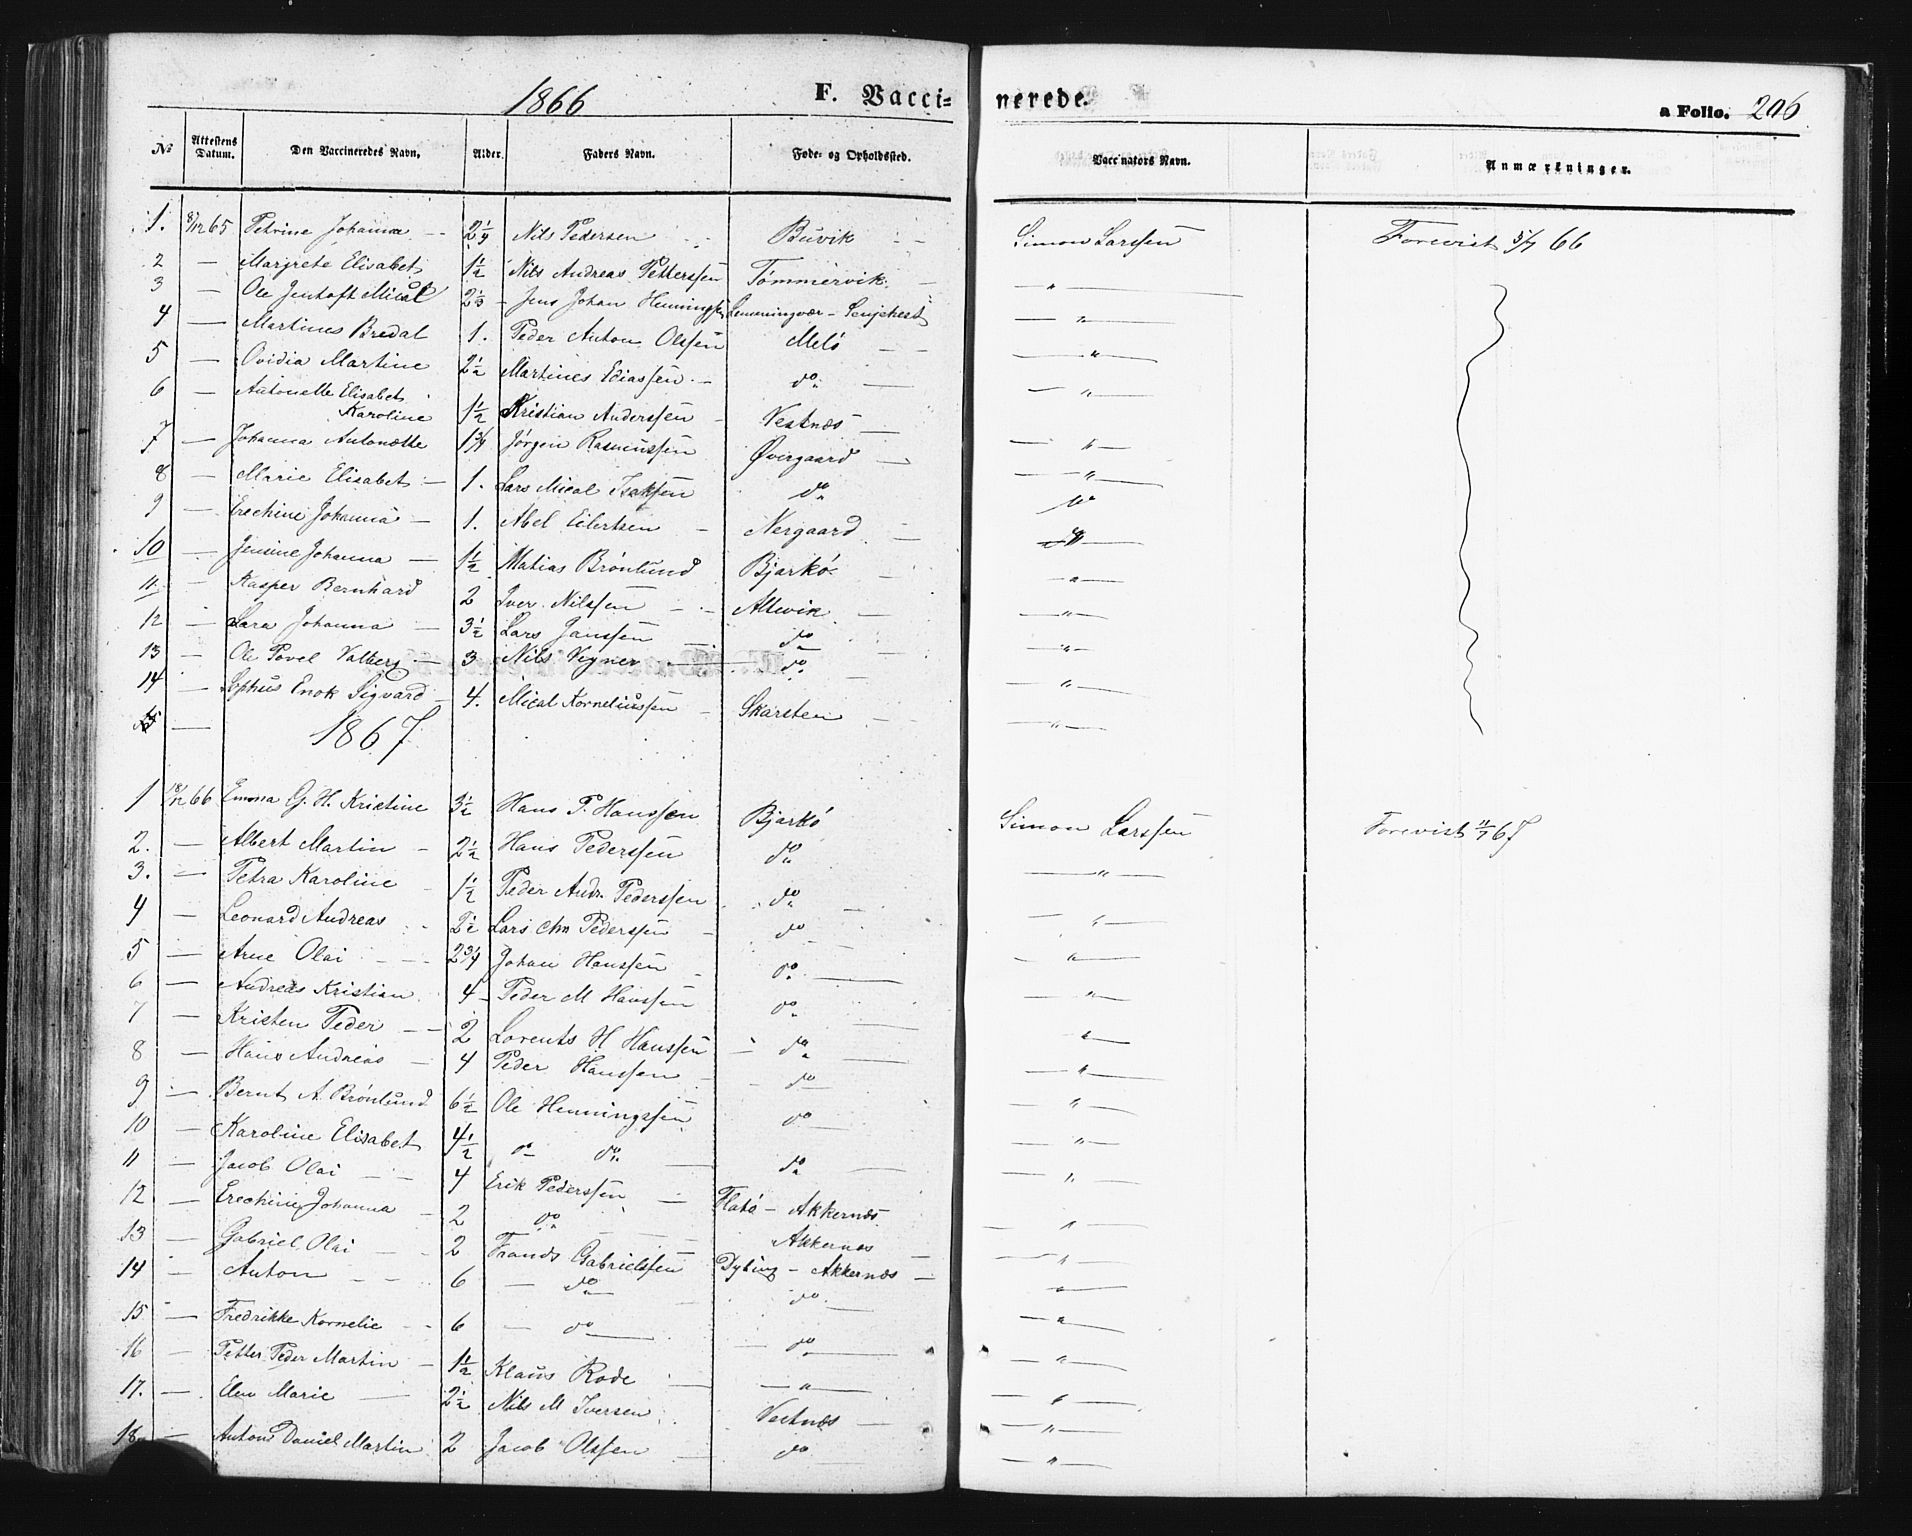 1866 F. Vacci= nerede. a Folio. 206
№ Attestens Datum. Den Vaccineredes Navn. Alder. Faders Navn. Føde- og Opholdssted. Vaccinators Navn. Anmærkninger.
1. 8/12 65 Petrine Johanna 2 1/4 Nils Pedersen Buvik Simon Larssen Forevist 5/7 66
2 — Margrete Elisabet 1 1/2 Nils Andreas Petterssen Tømmervik — " —
3 — Ole Jentoft Mical 2 1/3 Jens Johan Henningss — " —
4 — Martines Bredal 1. Peder Anton Olssen Melö — " —
5 — Ovidia Martine 2 1/2 Martines Ediassen do — " —
6 — Antonette Elisabet
Karoline 1 1/2 Kristian Anderssen Vestnæs — " —
7 — Johanna Antonette 1 3/4 Jørgen Rasmussen Øvergaard — " —
8 — Marie Elisabet 1. Lars Mical Isaksen do
9 — Erechine Johanna 1. Abel Eilertsen Nergaard — " —
10 — Jensine Johanna 1 1/2 Matias Brönlund Bjarkö — " —
11 — Kasper Bernhard 2 Iver Nilssen Allevik — " —
12 — Lara Johanna 3 1/2 Lars Janssen do — " —
13 — Ole Povel Valberg 3 Nils Vegner do — " —
14 — Sephus Enok Sigvard 4. Mical Korneliussen Skarsten — " —
15 —
1867
1 18/12 66 Emma G. H. Kristine 3 1/2 Hans P. Hanssen Bjarkö Simon Larssen Forevist 11/7 67
2. — Albert Martin 2 1/2 Hans Pederssen do — " —
3. — Petra Karoline 1 1/2 Peder Andr. Pederssen do — " —
4 — Leonard Andreas 2 1/2 Lars Chn Pederssen do — " —
5 — Arne Olai 2 3/4 Johan Hanssen do — " —
6 — Andreas Kristian 4 Peder M Hanssen do — " —
7 — Kristen Peder 2 Lorents H Hanssen do — " —
8 — Hans Andreas 4 Peder Hanssen do — " —
9 — Bernt A. Brönlund 6 1/2 Ole Henningssen do — " —
10 — Karoline Elisabet 4 1/2 do do do — " —
11 — Jacob Olai 4 Erik Pederssen Flatö - Akkernæs — " —
12 — Erechine Johanna 2 do Akkernæs — " —
13 — Gabriel Olai 2 Frands Gabrielssen Dybing - Akkernæs — " —
14 — Anton 6 — do — do — " —
15 — Fredrikke Kornelie 6 — do — do — " —
16 — Petter Peder Martin 1 1/2 Klaus Rode — " — — " —
17. — Elen Marie 2 1/2 Nils M Iversen Vestnæs — " —
18 — Anton Daniel Martin 2 Jacob Olssen do — " —